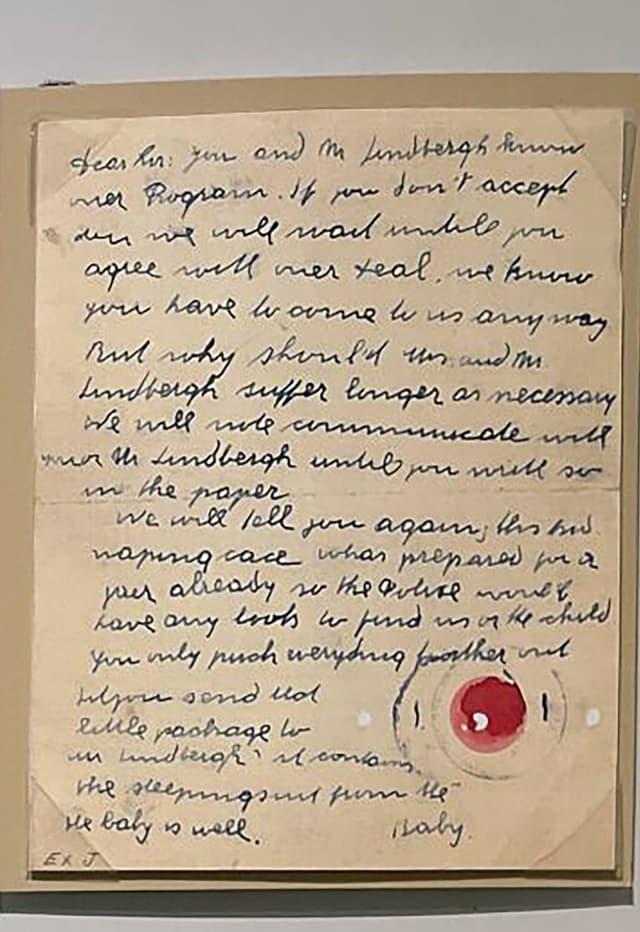 Dear Sir: you and Mr Lindbergh know
ouer Program. If you don't accept
den we will wait untill you
agree with ouer deal. we know
you have to come to us anyway
But why should Mrs. and Mr.
Lindbergh suffer longer as necessary
We will note communicate with
you or Mr Lindbergh until you write so
in the paper
We will tell you again; this kid
naping cace whas prepared for a
year already so the Police would
have any look to find us or the child
You only puch everyding further out
did you send that
little package to
Mr Lindbergh? it contains
the sleepingsuit from the
Baby.
the baby is well.
Ex J